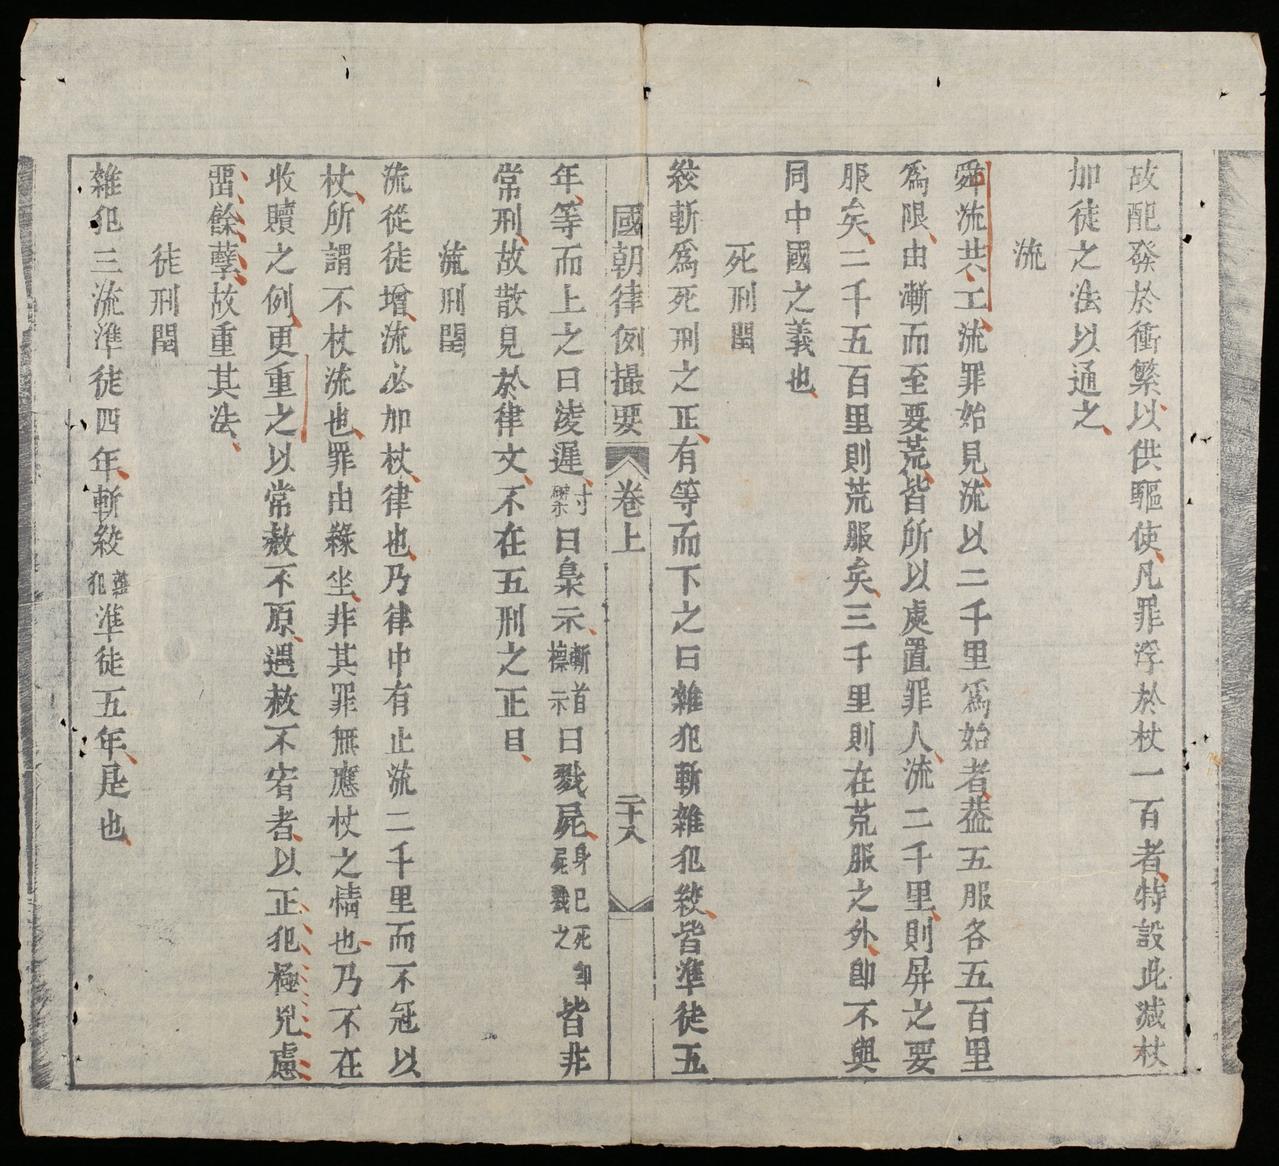 故配發於衝繁以供驅使凡罪浮於杖一百者特設此减杖
加徒之法以通之
流
舜流共工流罪始見流以二千里爲始者葢五服各五百里
爲限由漸而至要荒皆所以處置罪人流二千里則屏之要
服矣二千五百里則荒服矣三千里則在荒服之外卽不與
同中國之義也
死刑閏
絞斬爲死刑之正有等而下之曰雜犯斬雜犯絞皆準徒五
國朝律例撮要 卷上 二十八
年等而上之曰淩遲寸磔曰梟示斬首標示曰戮屍身已死卽屍戮之皆非
常刑故散見於律文不在五刑之正目
流刑閏
流從徒增流必加杖律也乃律中有止流二千里而不冠以
杖所謂不杖流也罪由緣坐非其罪無應杖之情也乃不在
收贖之例更重之以常赦不原遇赦不宥者以正犯極兇慮
畱餘孽故重其法
徒刑閏
雜犯三流準徒四年斬絞雜犯準徒五年是也